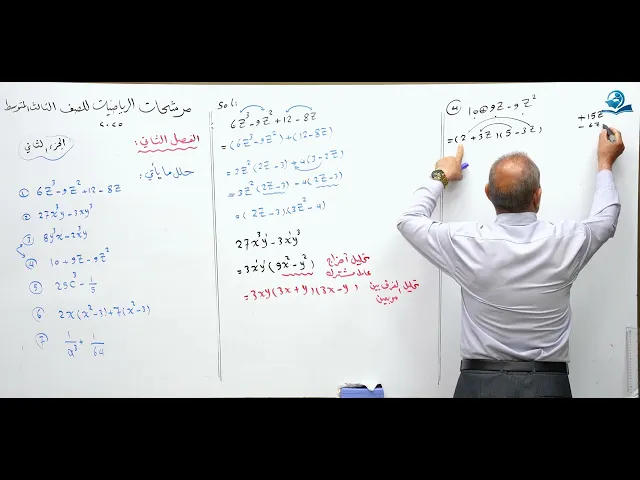 مرشحات الرياضيات للصف الثالث المتوسط
٢٠٢٥
الفصل الثاني:
الجزء الثاني
حلل ما يأتي:
① 6Z³-9Z²+12-8Z
② 27x³y-3xy³
③ 8y³x-2x³y
④ 10+9Z-9Z²
⑤ 25C³-1/5
⑥ 2x(x²-3)+7(x²-3)
⑦ 1/a³+1/64
Sol:
6Z³-9Z²+12-8Z
=(6Z³-9Z²)+(12-8Z)
=3Z²(2Z-3)+4(3-2Z)
=3Z²(2Z-3)-4(2Z-3)
=(2Z-3)(3Z²-4)
27x³y-3xy³
=3xy(9x²-y²)
تحليل اخراج عامل مشترك
=3xy(3x+y)(3x-y)
تحليل الفرق بين مربعين
④ 10⊕9Z-9Z²
=(2+3Z)(5-3Z)
+15Z
-6Z